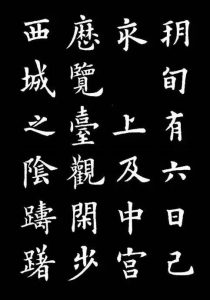 朔旬有六日己
亥 上及中宮
歷覽臺觀閑步
西城之陰躊躇